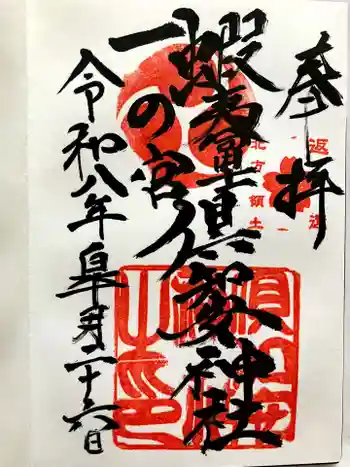 奉拝
返還
北方領土
蝦夷富士
一の宮
倶知安神社
令和八年皐月二十六日